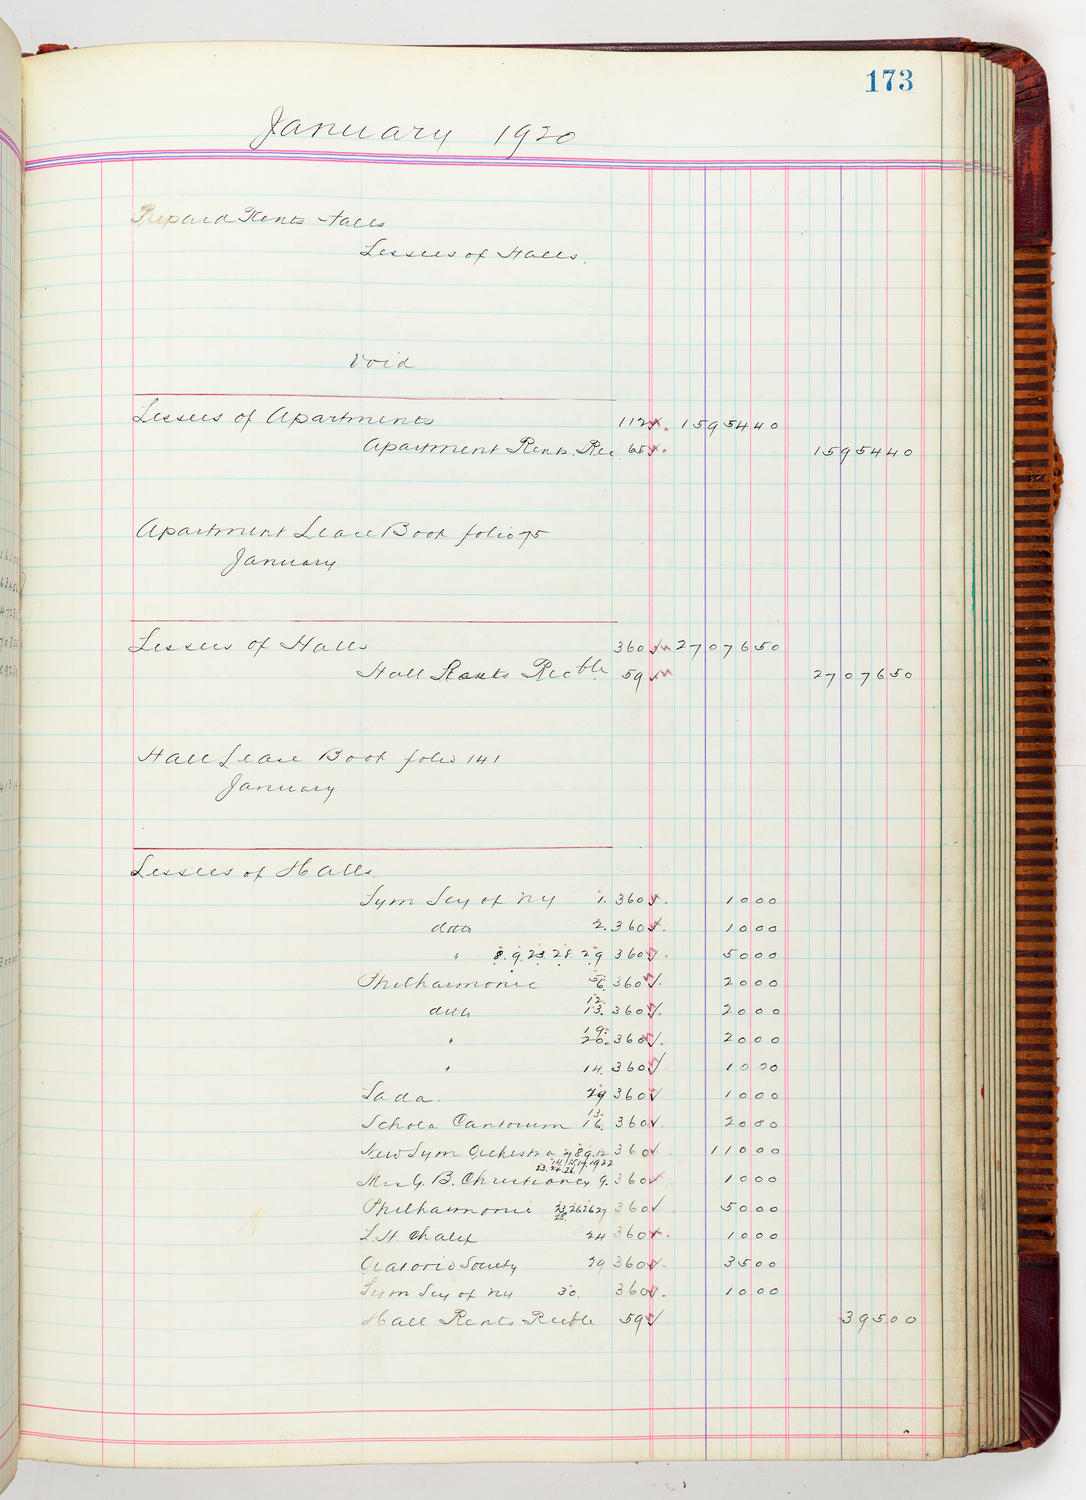 173
January 1920
Prepaid Rents Halls
Lessees of Halls.
Void
Lessees of Apartments 112 1595440
Apartment Rents Rec 65 1595440
Apartment Lease Book folio 75
January
Lessees of Halls 360 2707650
Hall Rents Recble 59 2707650
Hall Lease Book folio 141
January
Lessees of Halls.
Sym Socy of NY 1. 360 1000
ditto 2. 360 1000
" 8. 9. 23. 28. 29 360 5000
Philharmonic 5. 6. 360 2000
ditto 12. 13. 360 2000
" 19. 20. 360 2000
" 14. 360 1000
Sada. 29 360 1000
Schola Cantorum 13. 16. 360 2000
New Sym Orchestra 7 8 9. 12 360 11000
14. 15. 17. 19 22
23. 24. 26.
Mrs G. B. Christiancy 9. 360 1000
Philharmonic 23. 26 26 27 360 5000
28.
L. H. Chalif 24 360 1000
Oratorio Society 29 360 3500
Sym Socy of NY 30. 360 1000
Hall Rents Recble 59 39500